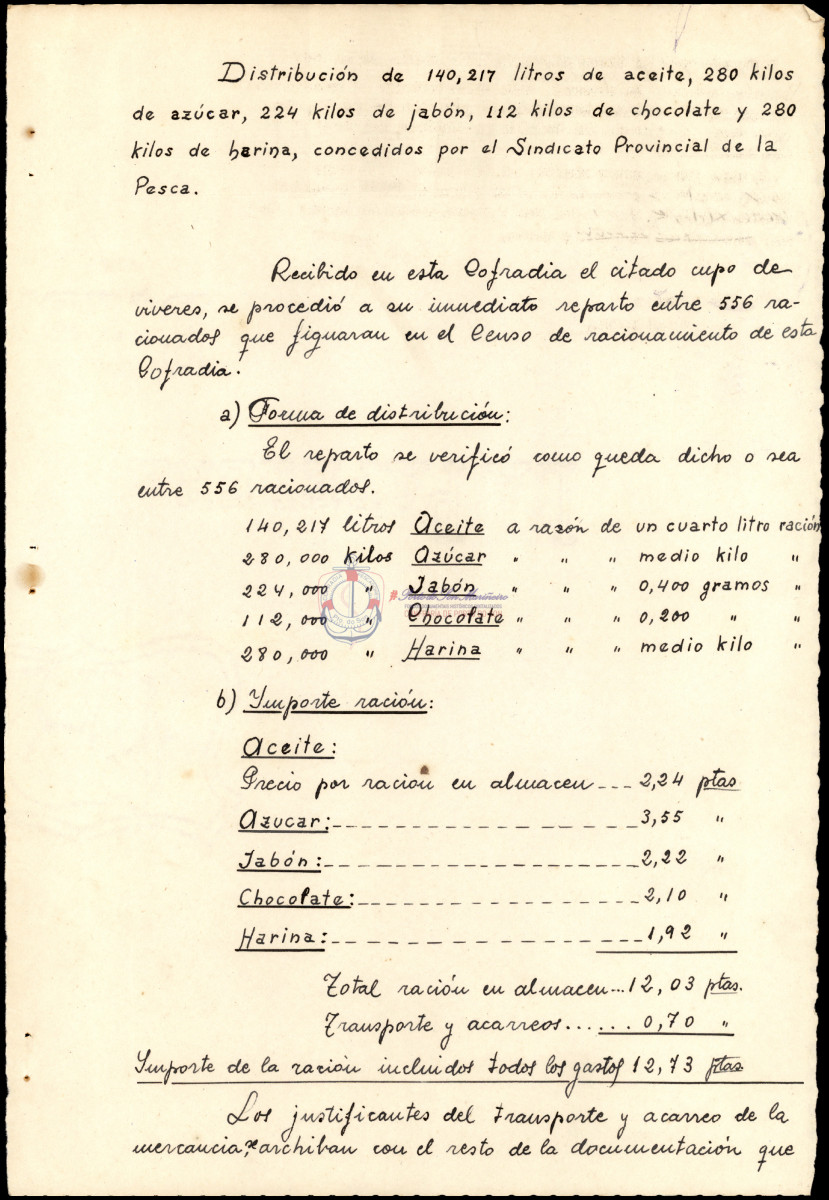 Distribución de 140,217 litros de aceite, 280 kilos
de azúcar, 224 kilos de jabón, 112 kilos de chocolate y 280
kilos de harina, concedidos por el Sindicato Provincial de la
Pesca.
Recibido en esta Cofradia el citado cupo de
viveres, se procedió a su inmediato reparto entre 556 ra-
cionados que figuraran en el Censo de racionamiento de esta
Cofradia.
a) Forma de distribución:
El reparto se verificó como queda dicho o sea
entre 556 racionados.
140,217 litros Aceite a razón de un cuarto litro ración
280,000 kilos Azúcar " " " medio kilo "
224,000 " Jabón " " " 0,400 gramos "
112,000 " Chocolate " " " 0,200 " "
280,000 " Harina " " " medio kilo "
b) Importe ración:
Aceite:
Precio por ración en almacen --- 2,24 ptas
Azucar: 3,55 "
Jabón: 2,22 "
Chocolate: 2,10 "
Harina: 1,92 "
Total ración en almacen... 12,03 ptas.
Transporte y acarreos...... 0,70 "
Importe de la ración incluidos todos los gastos 12,73 ptas
Los justificantes del transporte y acarreo de la
mercancia, se archiban con el resto de la documentación que